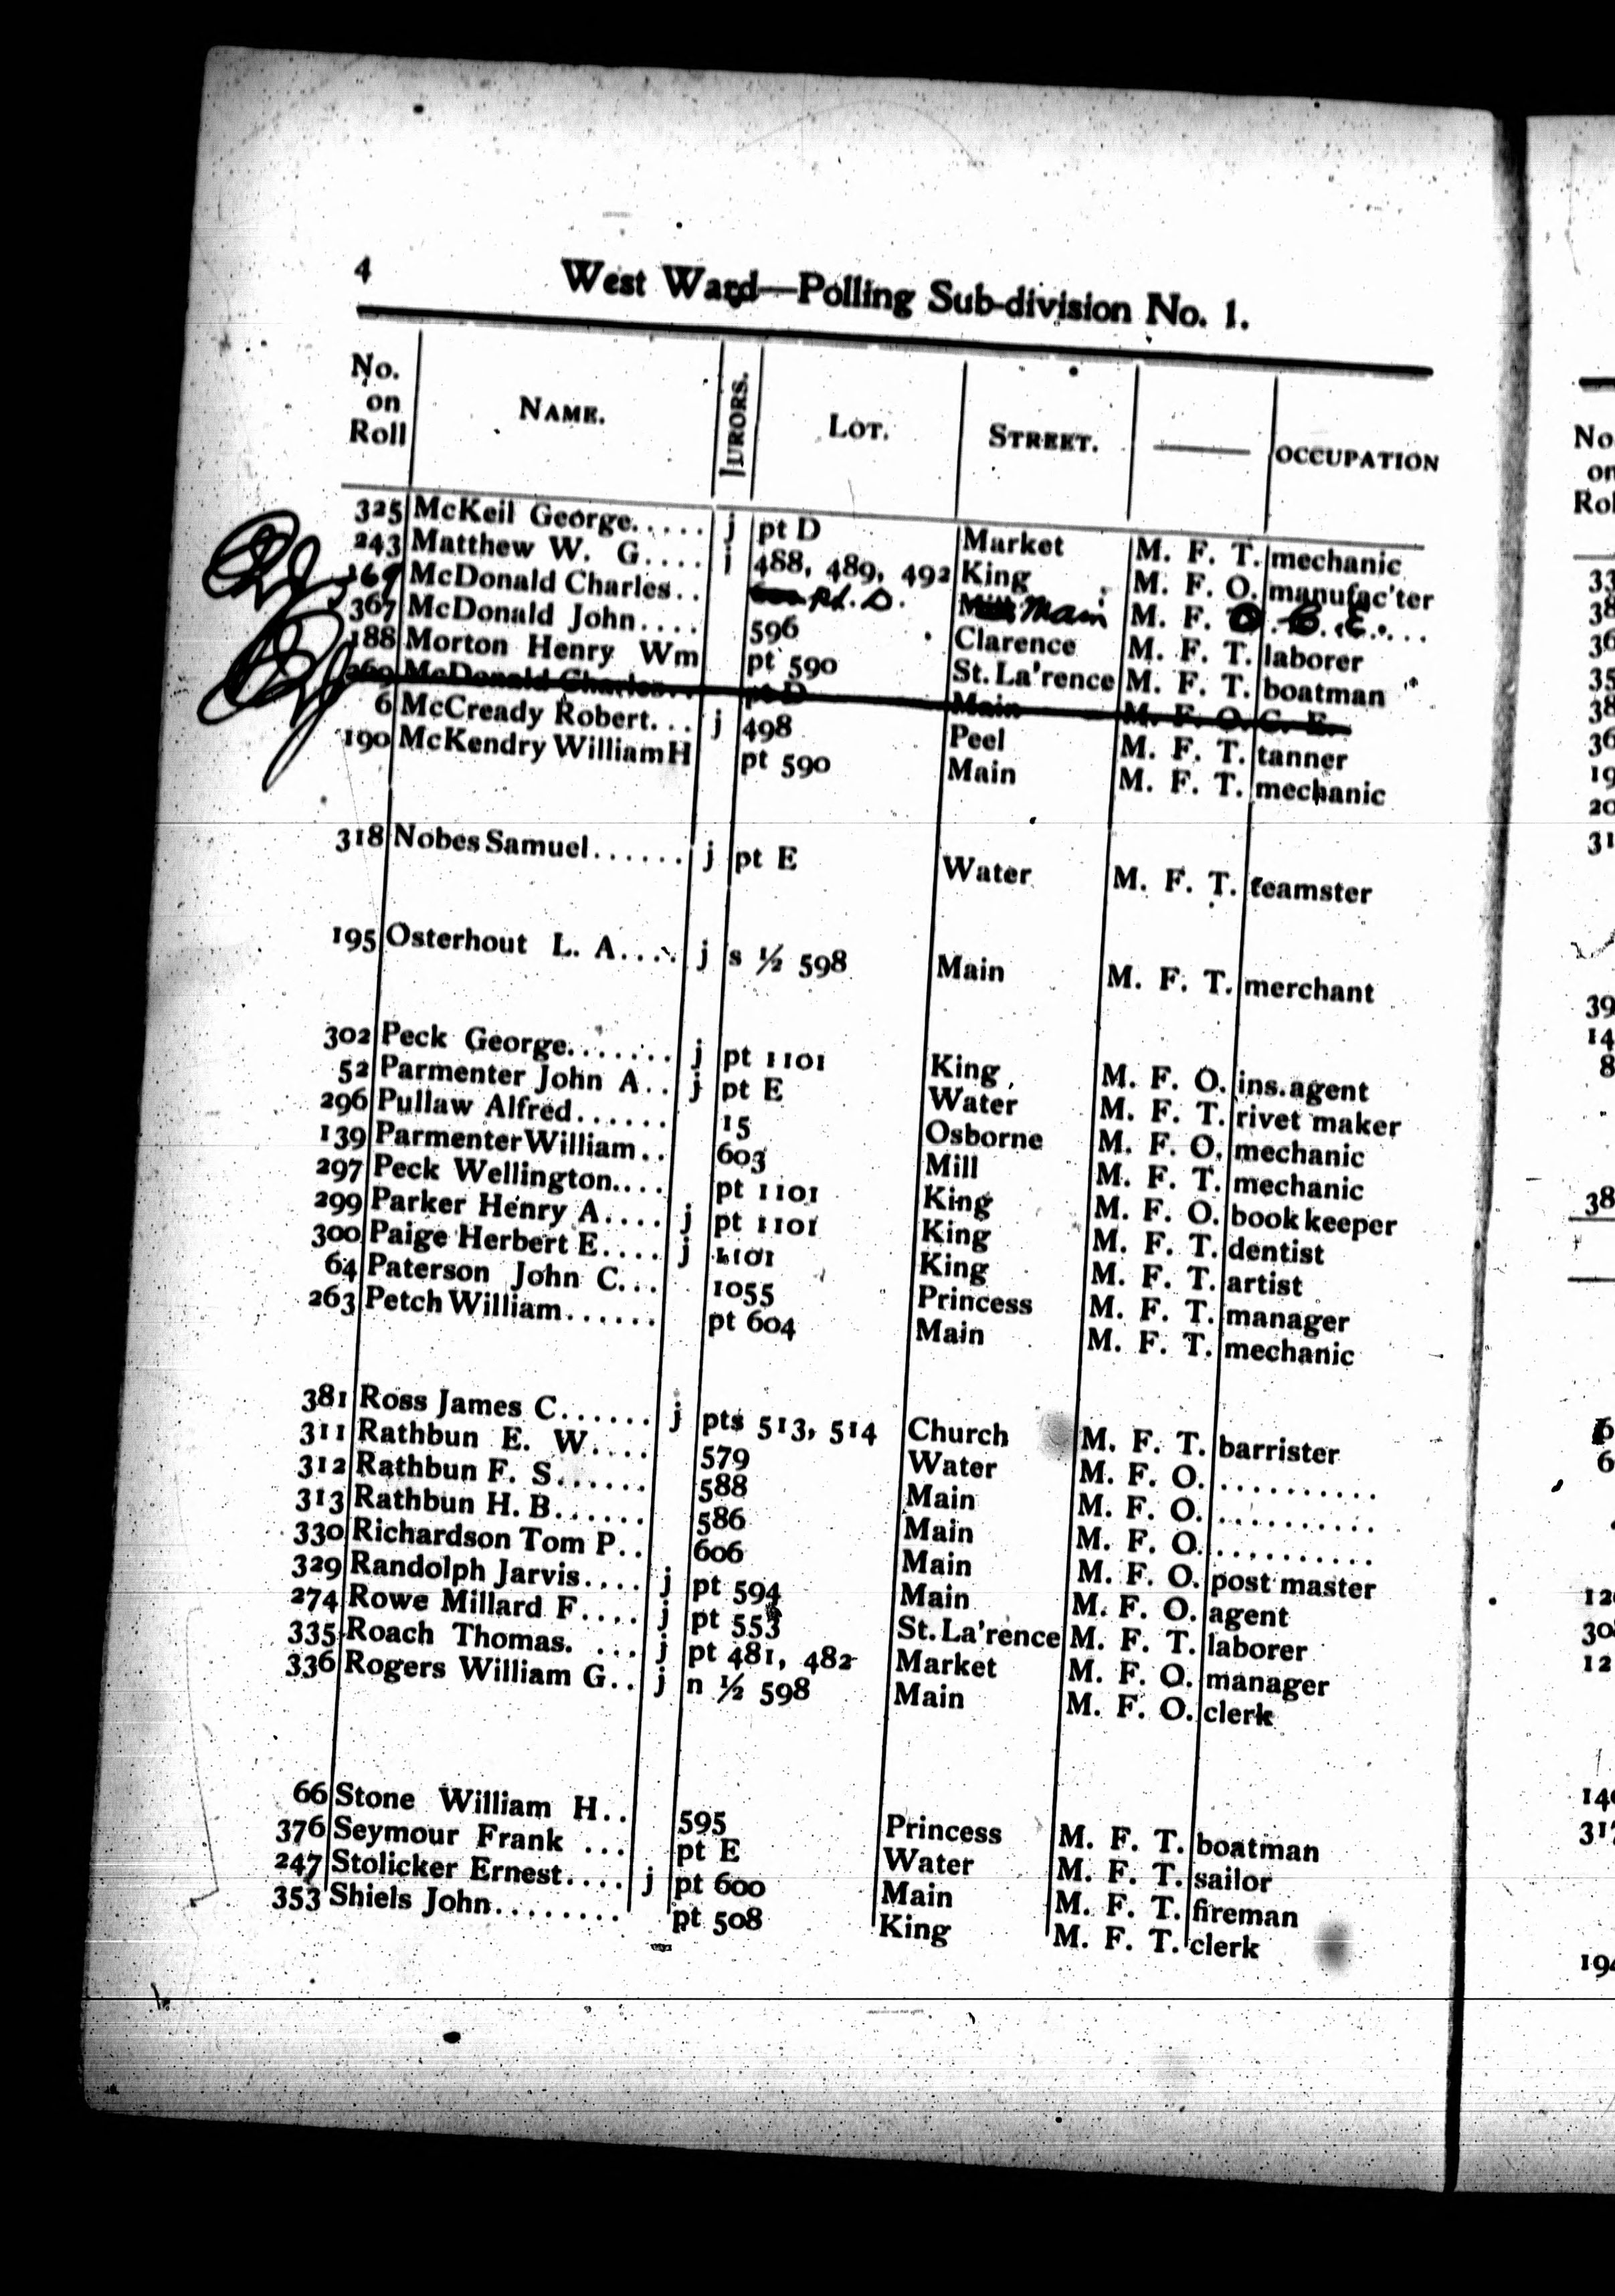 4 West Ward—Polling Sub-division No. 1.
No. on Roll NAME. JURORS. LOT. STREET. —— OCCUPATION
325 McKeil George..... j pt D Market M. F. T. mechanic
243 Matthew W. G.... j 488, 489, 492 King M. F. O. manufac'ter
169 McDonald Charles.. Pt. D. Main M. F. O. C. E. ...
367 McDonald John.... 596 Clarence M. F. T. laborer
188 Morton Henry Wm pt 590 St. La'rence M. F. T. boatman
269 McDonald Charles.. pt D Main M. F. O. C. E.
6 McCready Robert... j 498 Peel M. F. T. tanner
190 McKendry William H pt 590 Main M. F. T. mechanic
318 Nobes Samuel...... j pt E Water M. F. T. teamster
195 Osterhout L. A.... j s ½ 598 Main M. F. T. merchant
302 Peck George....... j pt 1101 King M. F. O. ins. agent
52 Parmenter John A.. j pt E Water M. F. T. rivet maker
296 Pullaw Alfred...... 15 Osborne M. F. O. mechanic
139 Parmenter William.. 603 Mill M. F. T. mechanic
297 Peck Wellington.... pt 1101 King M. F. O. book keeper
299 Parker Henry A.... j pt 1101 King M. F. T. dentist
300 Paige Herbert E.... j 1101 King M. F. T. artist
64 Paterson John C... 1055 Princess M. F. T. manager
263 Petch William...... pt 604 Main M. F. T. mechanic
381 Ross James C...... j pts 513, 514 Church M. F. T. barrister
311 Rathbun E. W.... 579 Water M. F. O. ..........
312 Rathbun F. S...... 588 Main M. F. O. ..........
313 Rathbun H. B...... 586 Main M. F. O. ..........
330 Richardson Tom P.. 606 Main M. F. O. post master
329 Randolph Jarvis.... j pt 594 Main M. F. O. agent
274 Rowe Millard F.... j pt 553 St. La'rence M. F. T. laborer
335 Roach Thomas. ... j pt 481, 482 Market M. F. O. manager
336 Rogers William G.. j n ½ 598 Main M. F. O. clerk
66 Stone William H.. 595 Princess M. F. T. boatman
376 Seymour Frank ... pt E Water M. F. T. sailor
247 Stolicker Ernest.... j pt 600 Main M. F. T. fireman
353 Shiels John........ pt 508 King M. F. T. clerk